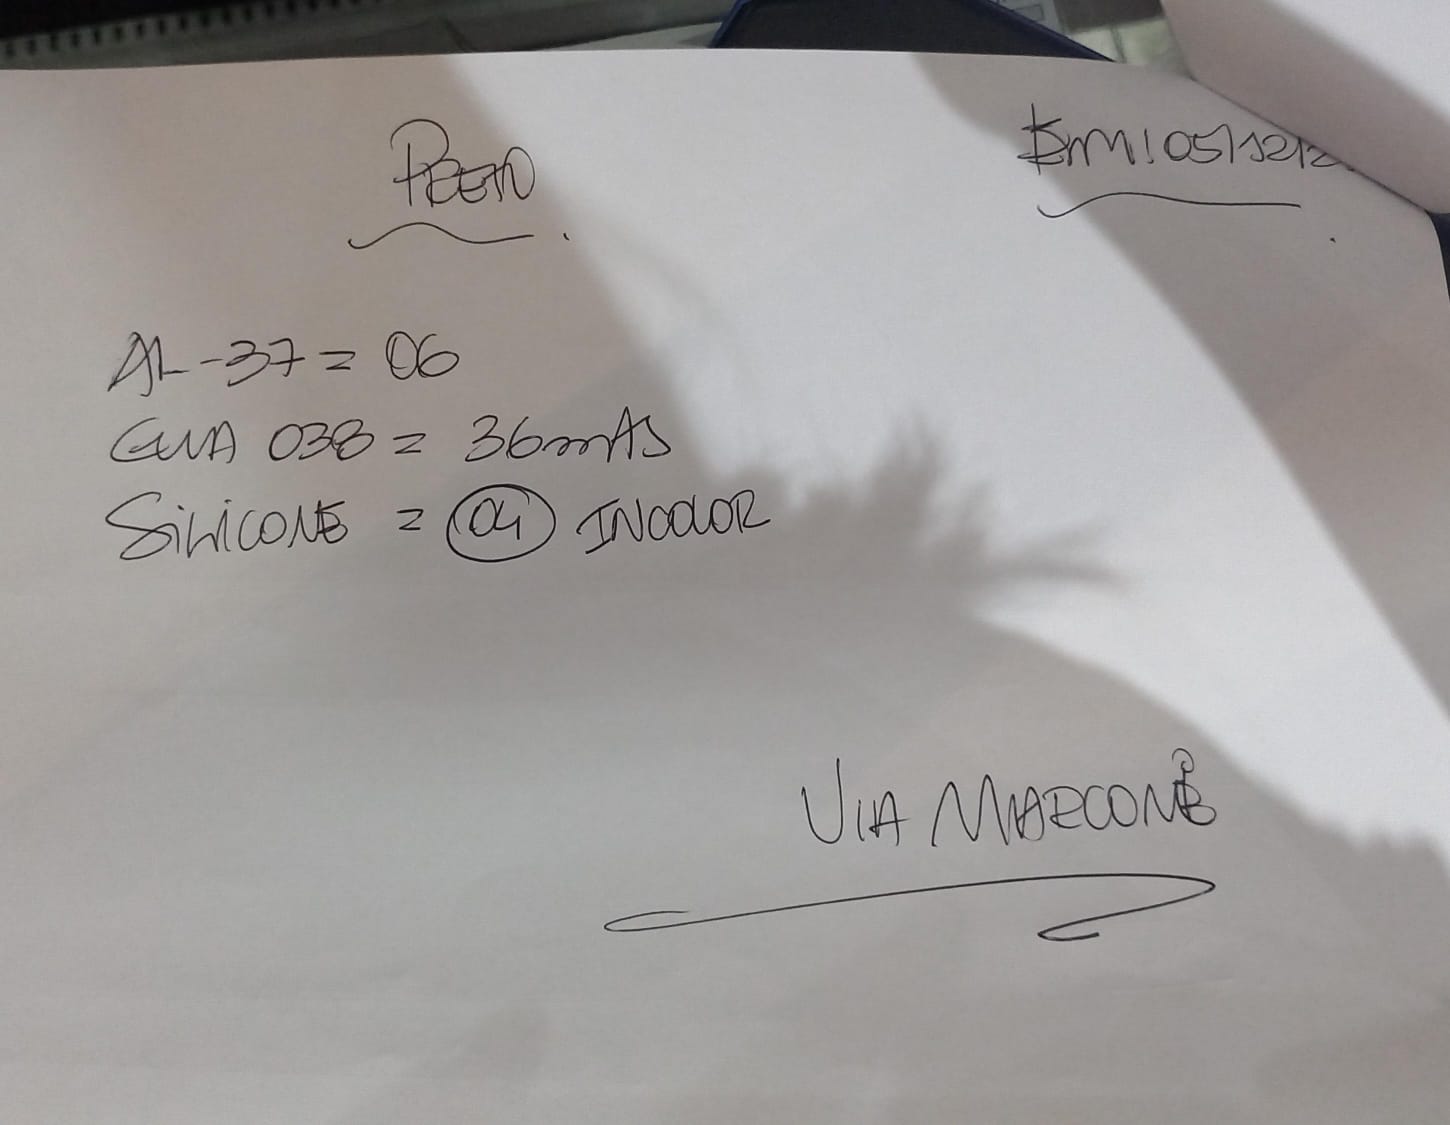 PRETO
EM: 05/12/2
AL-37 = 06
GUA 038 = 36mts
SILICONE = 04 INCOLOR
VIA MARCONE